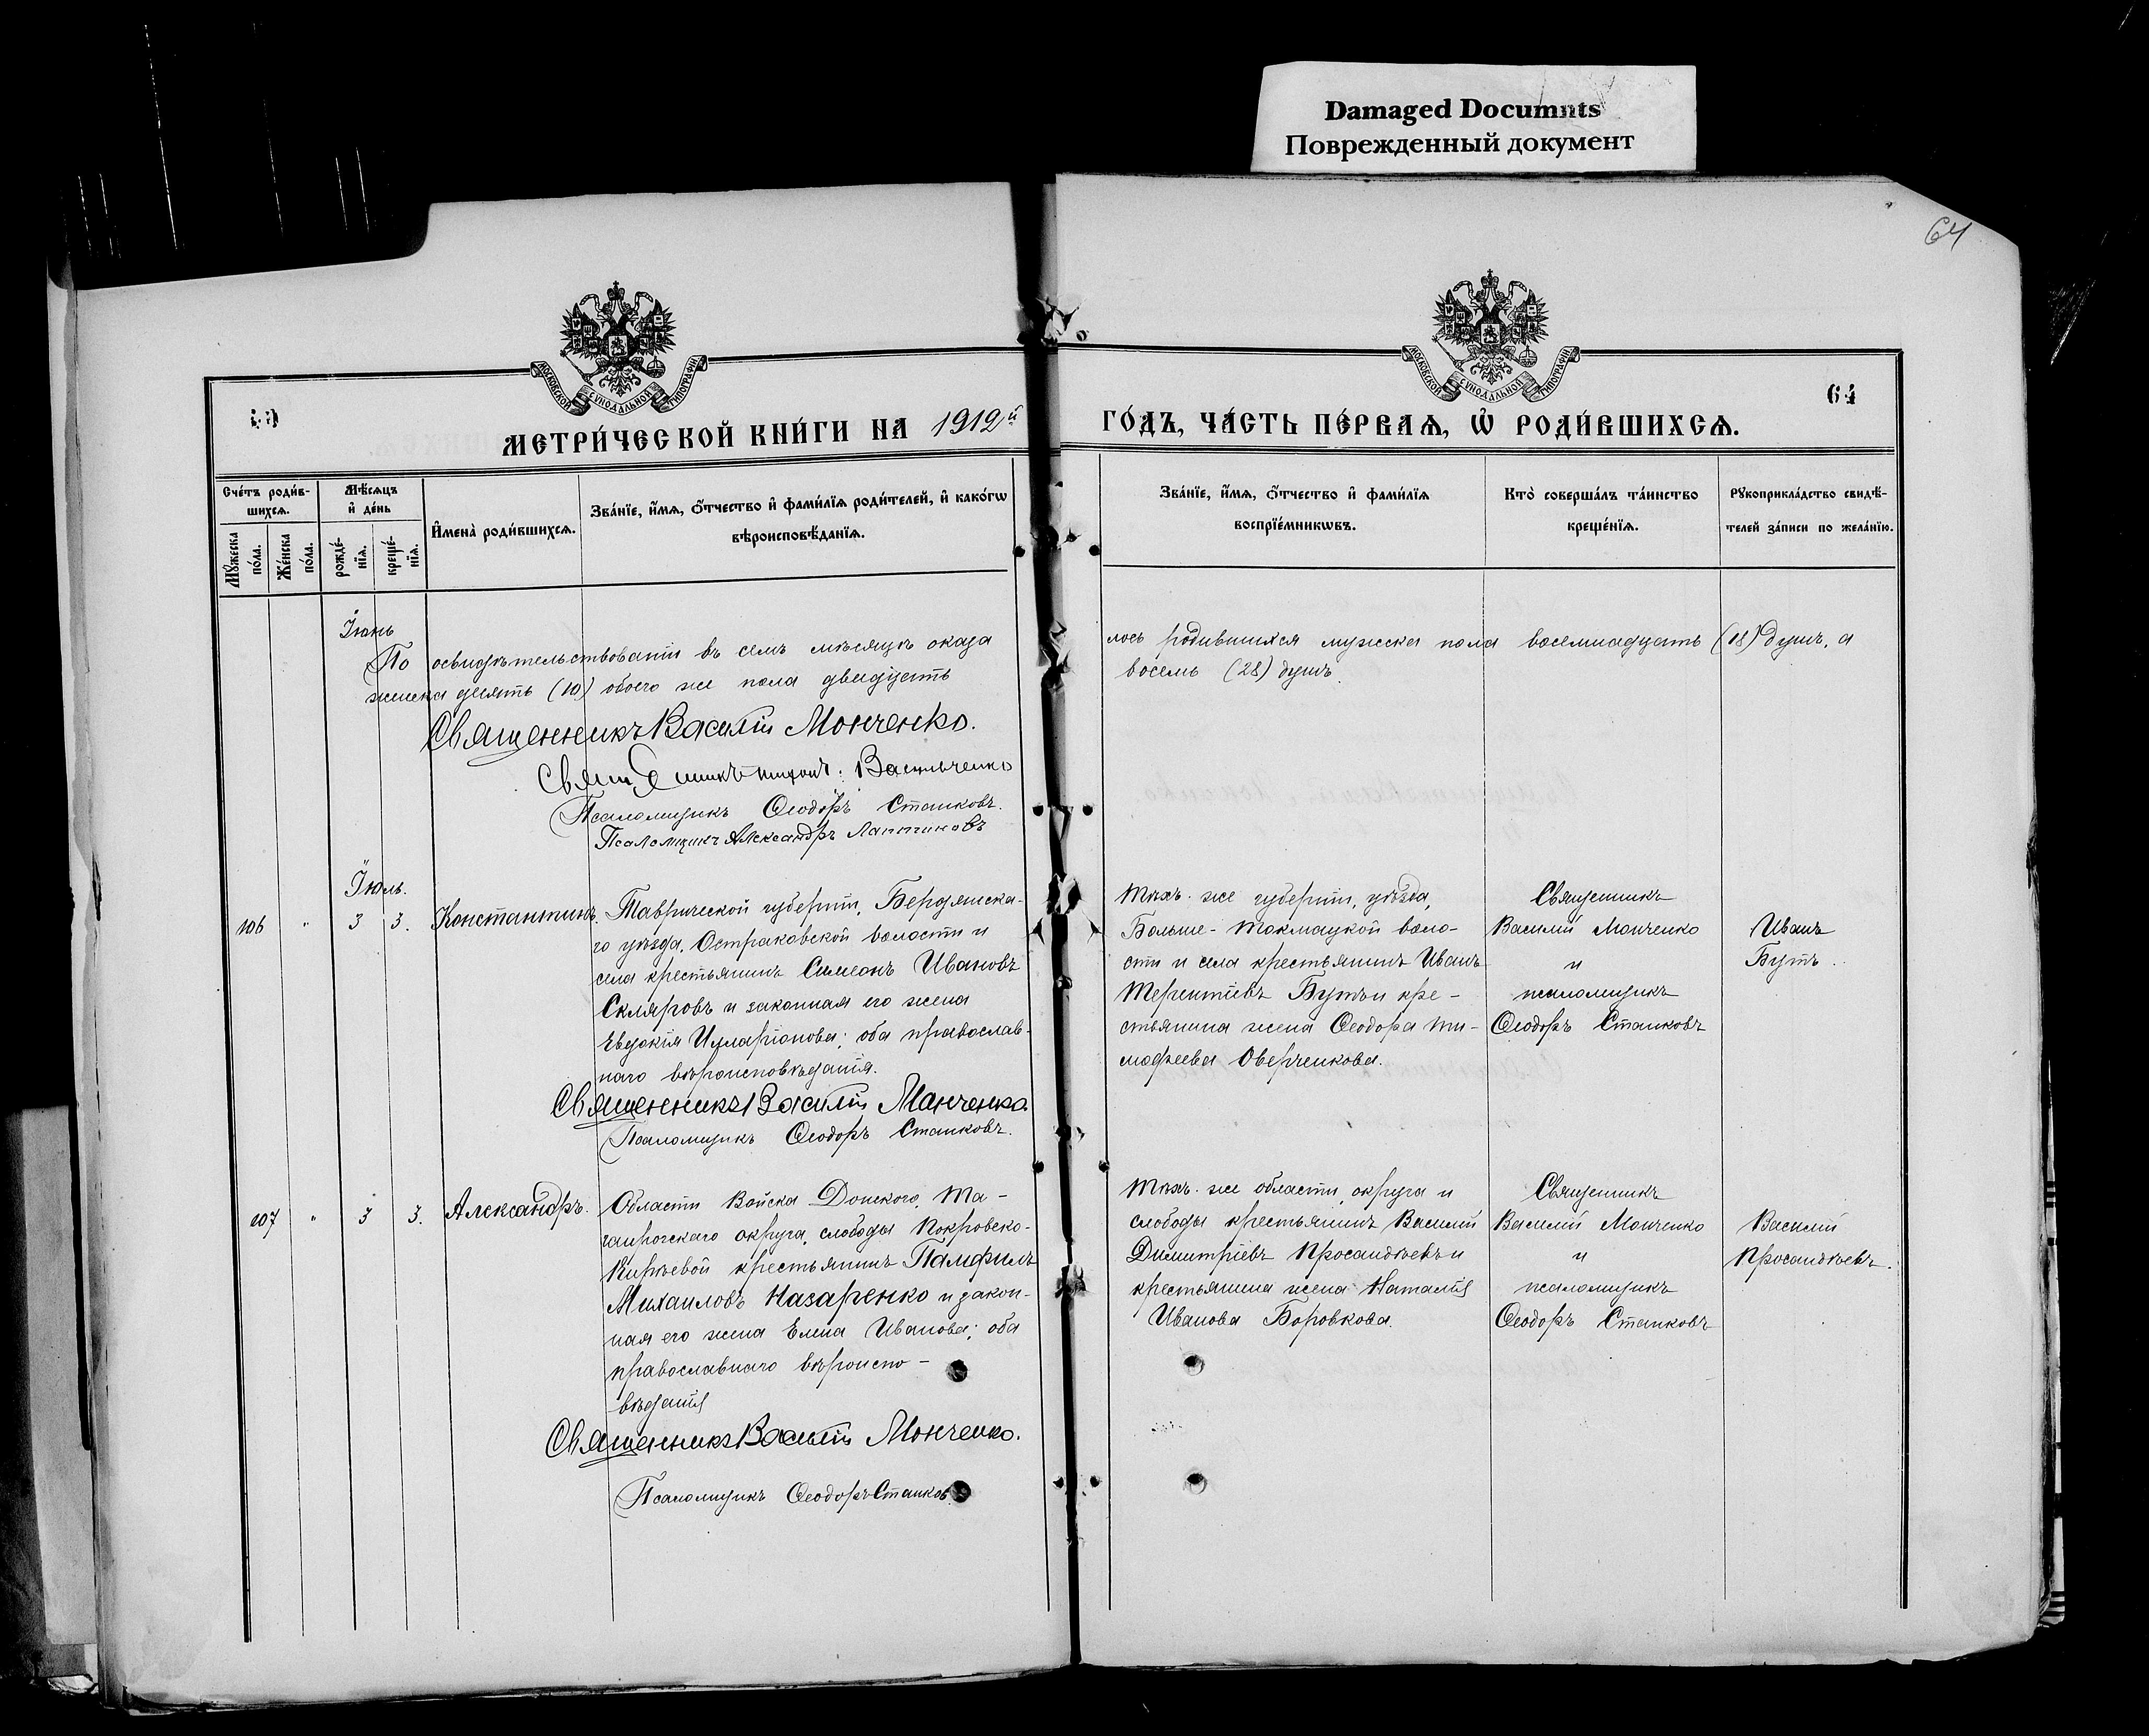 Damaged Documnts
Поврежденный документ
64
МОСКОВСКОЙ СУНОДАЛЬНОЙ ТИПОГРАФІИ
МОСКОВСКОЙ СУНОДАЛЬНОЙ ТИПОГРАФІИ
64
МЕТРИ́ЧЕСКОЙ КНИ́ГИ НА 1912й ГО́ДЪ, ЧА́СТЬ ПЕ́РВАѦ, Ѡ РОДИ́ВШИХСѦ.
Сче́тъ роди́в-
шихсѧ.
Мꙋжеска по́ла.
Же́нска по́ла.
Мѣ́сѧцъ
и де́нь
рожде́-
нїѧ.
креще́-
нїѧ.
Имена̀ роди́вшихсѧ.
Зва́нїе, и́мѧ, о́тчество и фами́лїѧ роди́телей, и како́гѡ
вѣроисповѣ́данїѧ.
Зва́нїе, и́мѧ, о́тчество и фами́лїѧ
воспрїе́мникѡвъ.
Кто̀ соверша́лъ та́инство
креще́нїѧ.
Рꙋкоприкла́дство свидѣ́-
телей за́писи по жела́нїю.
Іюнь
По освидѣтельствованіи въ семъ мѣсяцѣ оказа
лось родившихся мужска пола восемнадцать (18) душъ, а
женска десять (10) обоего же пола двадцать
восемь (28) душъ.
Священникъ Василій Монченко.
Священникъ Васильченко
Псаломщикъ Ѳеодоръ Станковъ.
Псаломщикъ Александръ Лаптиновъ
Іюль.
106 " 3 3. Константинъ.
Таврической губерніи, Бердянска-
го уѣзда, Остраковской волости и
села крестьянинъ Симеонъ Ивановъ
Скляровъ и законная его жена
Евдокія Илларіонова; оба православ-
наго вѣроисповѣданія.
Священникъ Василій Монченко
Псаломщикъ Ѳеодоръ Станковъ.
Тѣхъ-же губерніи, уѣзда,
Больше-Токмацкой воло-
сти и села крестьянинъ Иванъ
Терентіевъ Бутъ и кре-
стьянина жена Ѳеодора Ти-
мофеева Оверченкова.
Священникъ
Василій Монченко
и
псаломщикъ
Ѳеодоръ Станковъ
Иванъ
Бутъ.
107 " 3 3. Александръ.
Области Войска Донского, Та-
ганрогскаго округа, слободы Покровско-
Кирѣевой крестьянинъ Памфилъ
Михаиловъ Назаренко и закон-
ная его жена Елена Иванова; оба
православнаго вѣроиспо-
вѣданія
Священникъ Василій Монченко.
Псаломщикъ Ѳеодоръ Станков
Тѣхъ-же области, округа и
слободы крестьянинъ Василій
Димитріевъ Просандѣевъ и
крестьянина жена Наталія
Иванова Боровкова.
Священникъ
Василій Монченко
и
псаломщикъ
Ѳеодоръ Станковъ
Василій
Просандѣевъ.